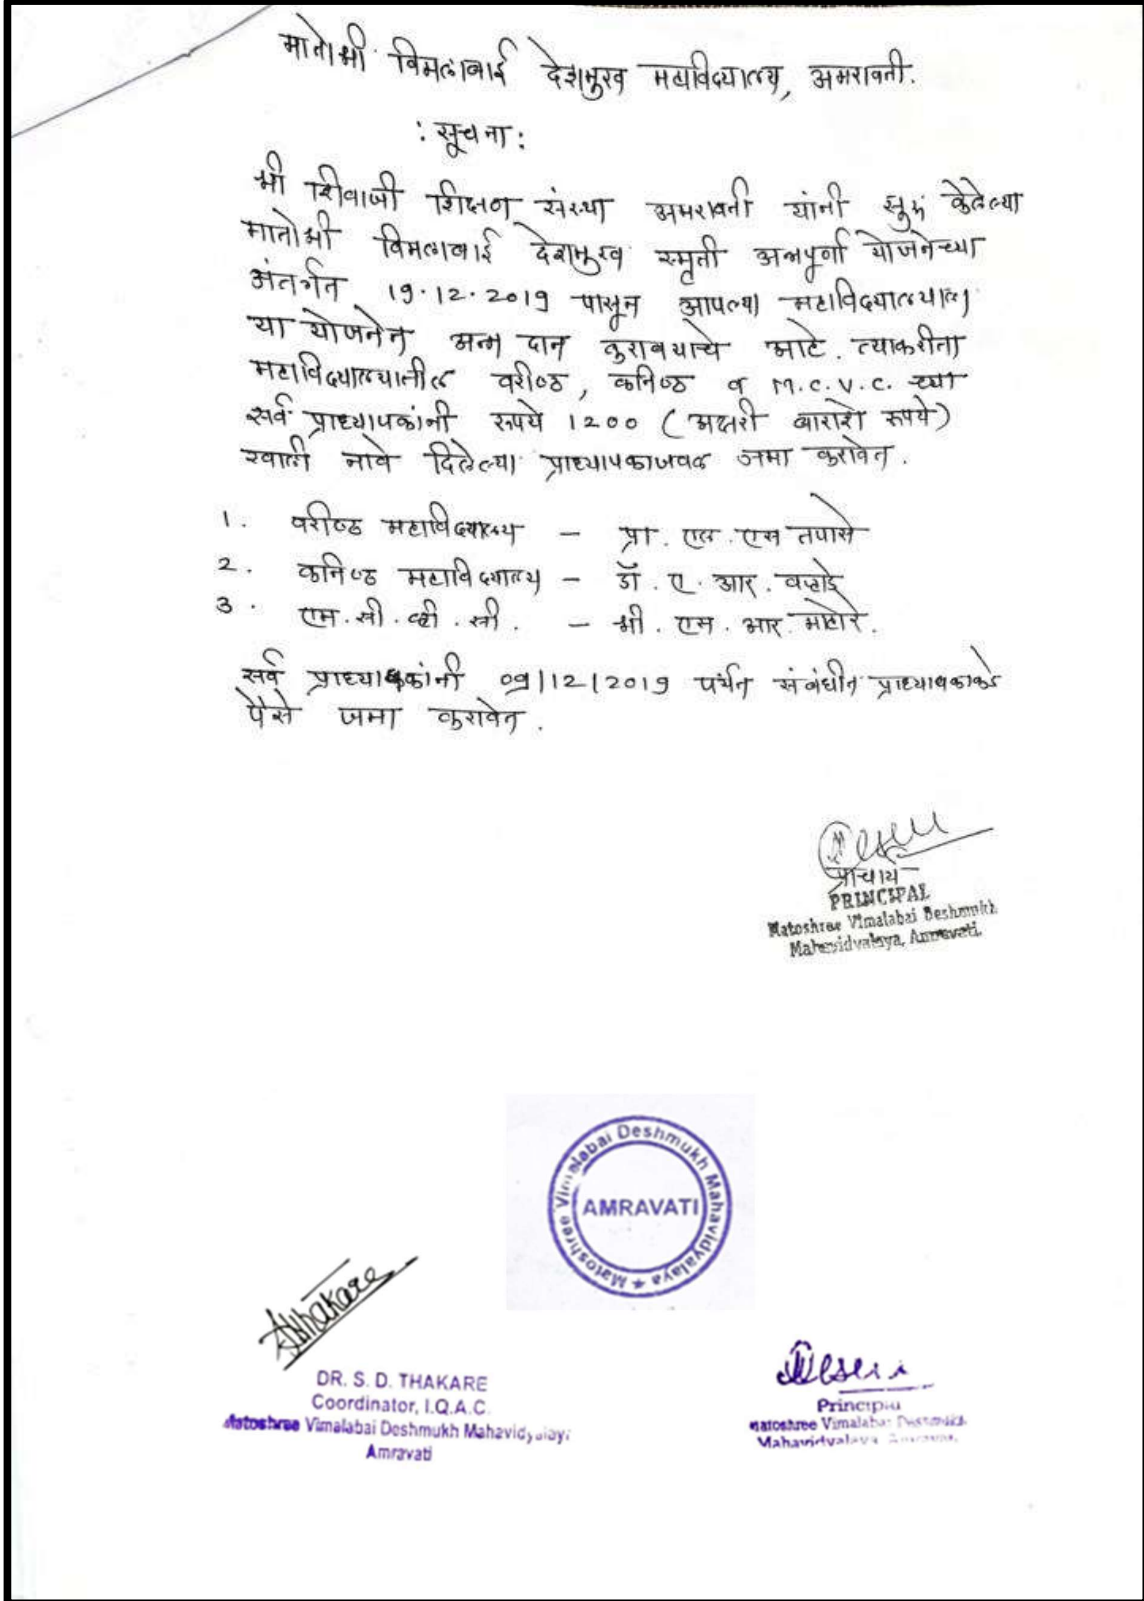 मातोश्री विमलाबाई देशमुख महाविद्यालय, अमरावती.
: सूचना :
श्री शिवाजी शिक्षण संस्था अमरावती यांनी सुरु केलेल्या
मातोश्री विमलाबाई देशमुख स्मृती अन्नपूर्णा योजनेच्या
अंतर्गत 19.12.2019 पासून आपल्या महाविद्यालयाला
या योजनेत अन्न दान करावयाचे आहे. त्याकरीता
महाविद्यालयातील वरीष्ठ, कनिष्ठ व M.C.V.C. च्या
सर्व प्राध्यापकांनी रुपये 1200 (अक्षरी बाराशे रुपये)
खाली नावे दिलेल्या प्राध्यापकाजवळ जमा करावेत.
1. वरीष्ठ महाविद्यालय - प्रा. एल. एस तपासे
2. कनिष्ठ महाविद्यालय - डॉ. ए. आर. वऱ्हाडे
3. एम. सी. व्ही. सी. - श्री. एस. आर. माहोरे.
सर्व प्राध्यापकांनी 09/12/2019 पर्यंत संबंधीत प्राध्यापकाकडे
पैसे जमा करावेत.
प्राचार्य
PRINCIPAL
Matoshree Vimalabai Deshmukh
Mahavidyalaya, Amravati.
Matoshree Vimalabai Deshmukh Mahavidyalaya ★
AMRAVATI
SThakare
DR. S. D. THAKARE
Coordinator, I.Q.A.C.
Matoshree Vimalabai Deshmukh Mahavidyalaya
Amravati
Principal
Matoshree Vimalabai Deshmukh
Mahavidyalaya Amravati.